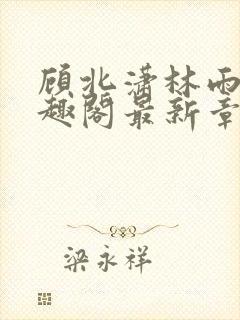 顾北潇林雨
趣阁最新章
梁永祥